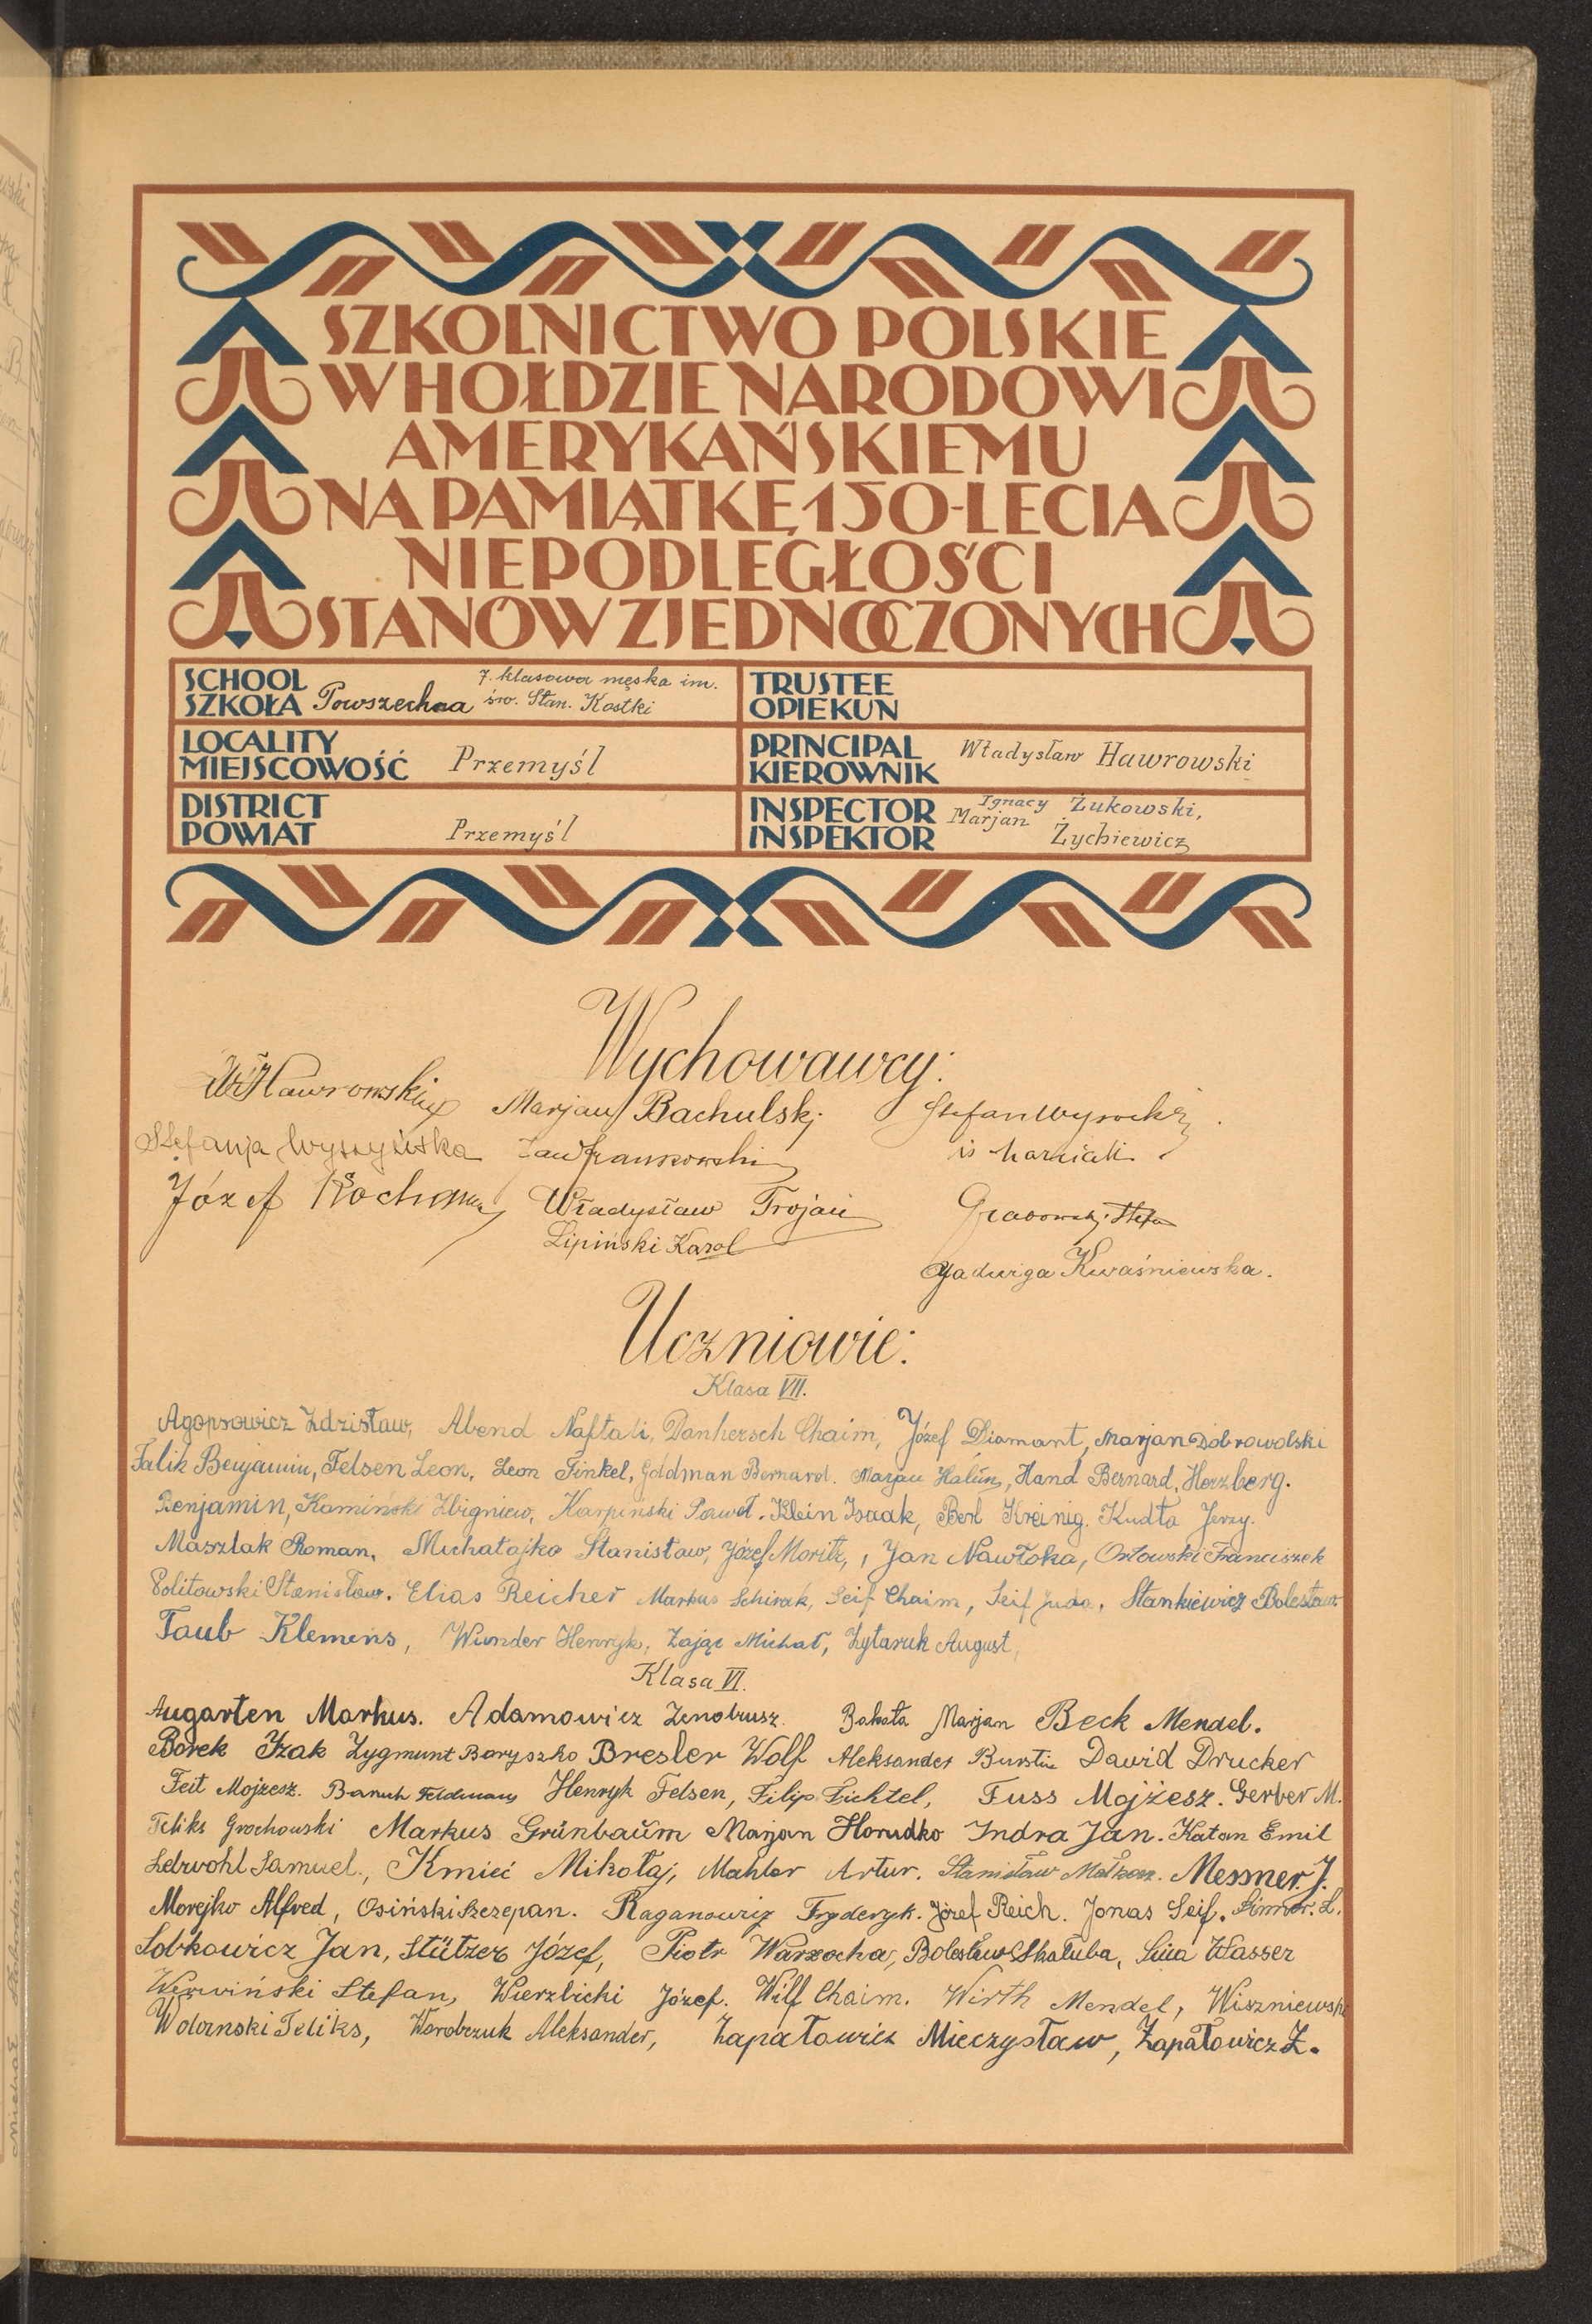 SZKOLNICTWO POLSKIE
W HOŁDZIE NARODOWI
AMERYKAŃSKIEMU
NA PAMIĄTKĘ 150-LECIA
NIEPODLEGŁOŚCI
STANÓW ZJEDNOCZONYCH
SCHOOL
SZKOŁA Powszechna 7. klasowa męska im. św. Stan. Kostki
TRUSTEE
OPIEKUN
LOCALITY
MIEJSCOWOŚĆ Przemyśl
PRINCIPAL
KIEROWNIK Władysław Hawrowski
DISTRICT
POWIAT Przemyśl
INSPECTOR Ignacy Żukowski,
INSPEKTOR Marjan Żychiewicz
Wychowawcy:
Wł Hawrowski Marjan Bachulski Stefan Wysocki
Stefanja Wyszyńska Jan Frankowski
Józef Kochman Władysław Trojan Grabowski Stefan
Lipiński Karol
Jadwiga Kwaśniewska.
Uczniowie:
Klasa VII.
Agopsowicz Zdzisław, Abend Naftali, Danhersch Chaim, Józef Diamant, Marjan Dobrowolski
Falik Benjamin, Felsen Leon, Leon Finkel, Goldman Bernard. Marjan Halun, Hand Bernard, Herzberg.
Benjamin, Kamiński Zbigniew, Karpiński Paweł. Klein Isaak, Berl Kreinig. Kudła Jerzy.
Maszlak Roman, Michałajko Stanisław, Józef Moritz, Jan Nawłoka, Orłowski Franciszek
Politowski Stanisław. Elias Reicher Markus Schirak, Seif Chaim, Seif Juda, Stankiewicz Bolesław
Taub Klemens, Wunder Henryk, Zając Michał, Żytaruk August,
Klasa VI.
Augarten Markus. Adamowicz Zenobiusz. Bakała Marjan Beck Mendel.
Borek Izak Zygmunt Baryszko Bresler Wolf Aleksander Burstin Dawid Drucker
Feit Mojżesz. Baruch Feldmann Henryk Felsen, Filip Fichtel, Fuss Mojżesz. Gerber M.
Feliks Grochowski Markus Grünbaum Marjan Horudko Indra Jan. Katan Emil
Ledrwohl Samuel., Kmieć Mikołaj, Mahler Artur. Stanisław Messner J.
Morejko Alfred, Osiński Szczepan. Raganowicz Fryderyk. Józef Reich. Jonas Seif. Sinner. L.
Sobkowicz Jan, Stützer Józef, Piotr Warzocha, Bolesław Skałuba, Wasser
Werwiński Stefan, Wierzbicki Józef. Wilf Chaim. Wirth Mendel, Wiszniewski
Wolanski Feliks, Worobczuk Aleksander, Zapałowicz Mieczysław, Zapałowicz Z.